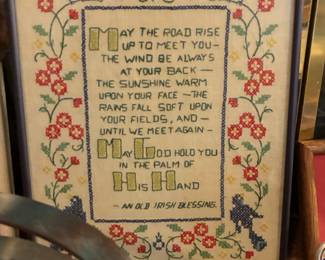 MAY THE ROAD RISE
UP TO MEET YOU —
THE WIND BE ALWAYS
AT YOUR BACK —
THE SUNSHINE WARM
UPON YOUR FACE — THE
RAINS FALL SOFT UPON
YOUR FIELDS, AND —
UNTIL WE MEET AGAIN —
MAY GOD HOLD YOU
IN THE PALM OF
HIS HAND
— AN OLD IRISH BLESSING.